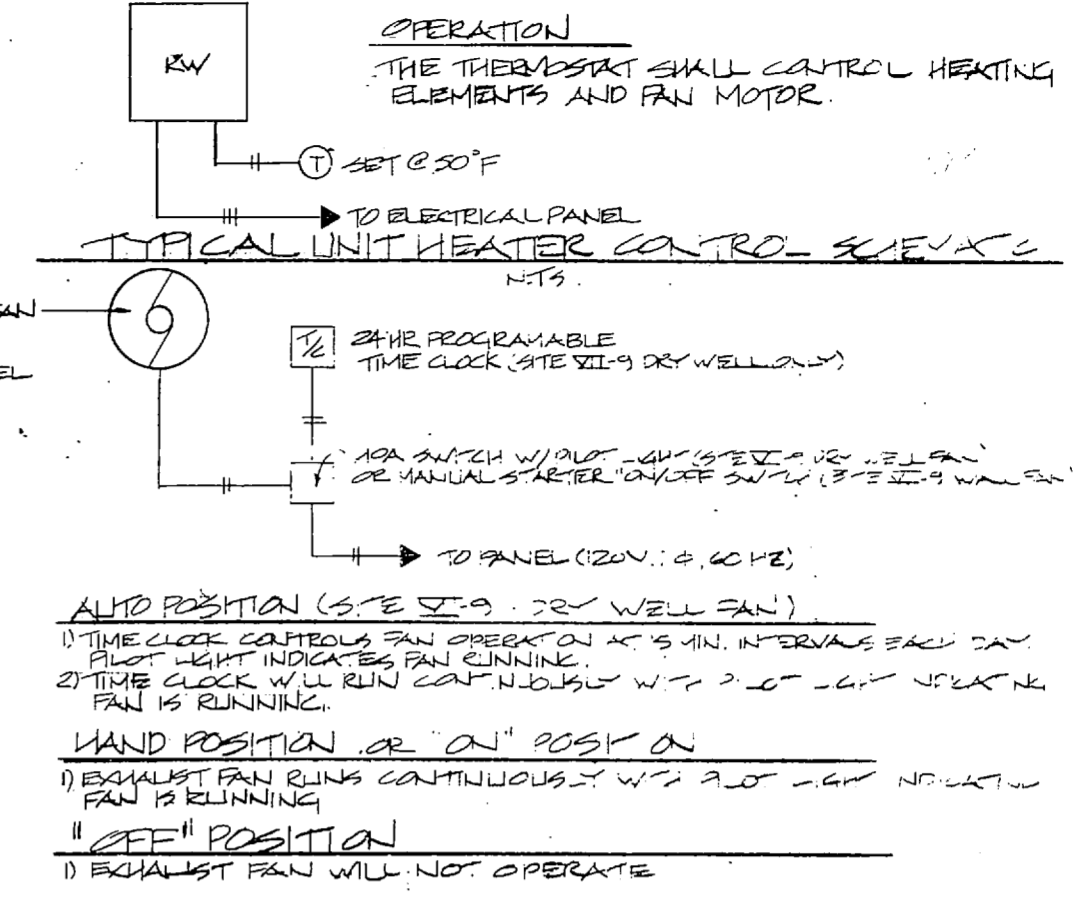 KW
OPERATION
THE THERMOSTAT SHALL CONTROL HEATING
ELEMENTS AND FAN MOTOR.
T SET @ 50°F
TO ELECTRICAL PANEL
TYPICAL UNIT HEATER CONTROL SCHEMATIC
N.T.S.
T/C 24 HR PROGRAMABLE
TIME CLOCK (SITE VII-9 DRY WELL ONLY)
SWITCH W/ PILOT LIGHT (SITE DRY WELL FAN)
OR MANUAL STARTER "ON/OFF SWITCH WALL FAN
TO PANEL (120V. 60 HZ)
AUTO POSITION (SITE DRY WELL FAN)
1) TIME CLOCK CONTROLS FAN OPERATION AT 15 MIN. INTERVALS EACH DAY.
PILOT LIGHT INDICATES FAN RUNNING.
2) TIME CLOCK WILL RUN CONTINUOUSLY WITH PILOT LIGHT INDICATING
FAN IS RUNNING.
HAND POSITION OR "ON" POSITION
1) EXHAUST FAN RUNS CONTINUOUSLY WITH PILOT LIGHT INDICATING
FAN IS RUNNING
"OFF" POSITION
1) EXHAUST FAN WILL NOT OPERATE